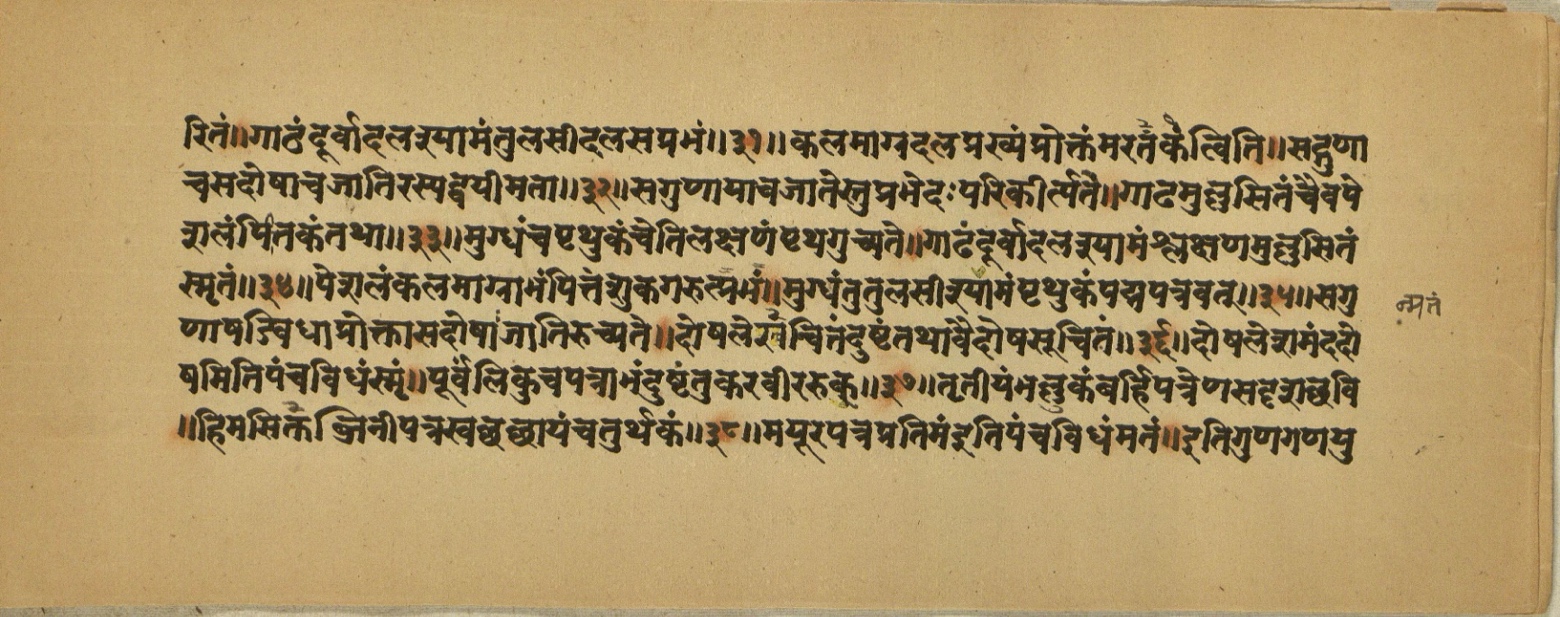 रितं॥गाठंदूर्वादलश्यामंतुलसीदलसप्रभं॥३१॥कलमाग्रदलप्रख्यंप्रोक्तंमरतकंत्विति॥सद्गुणा
चसदोषाचजातिरस्यद्वयीमता॥३२॥सगुणायाचजातेस्तुप्रभेदःपरिकीर्त्यते॥गाढमुल्लसितंचैवपे
शलंपितकंतथा॥३३॥मुग्धंचपृथुकंचेतिलक्षणंपृथगुच्यते॥गाढंदूर्वादलश्यामंश्लक्ष्णमुल्लसितं
स्मृतं॥३४॥पेशलंकलमाग्राभंपित्तंशुकगरुत्प्रभं॥मुग्धंतुतुलसीश्यामंपृथुकंपद्मपत्रवत्॥३५॥सगु
णाषड्विधाप्रोक्तासदोषाजातिरुच्यते॥दोषलेखंचितंदुष्टंतथावैदोषसूचितं॥३६॥दोषलेशामंददो
षमितिपंचविधंस्मृं॥पूर्वंलिकुचपत्राभंदुष्टंतुकरवीररुक्॥३७॥तृतीयंभल्लुकंबर्हिपत्रेणसदृशछवि
॥हिमसिक्ताब्जिनीपत्रस्वछछायंचतुर्थकं॥३८॥मयूरपत्रप्रतिमंइतिपंचविधंमतं॥इतिगुणगणयु
न्मतं